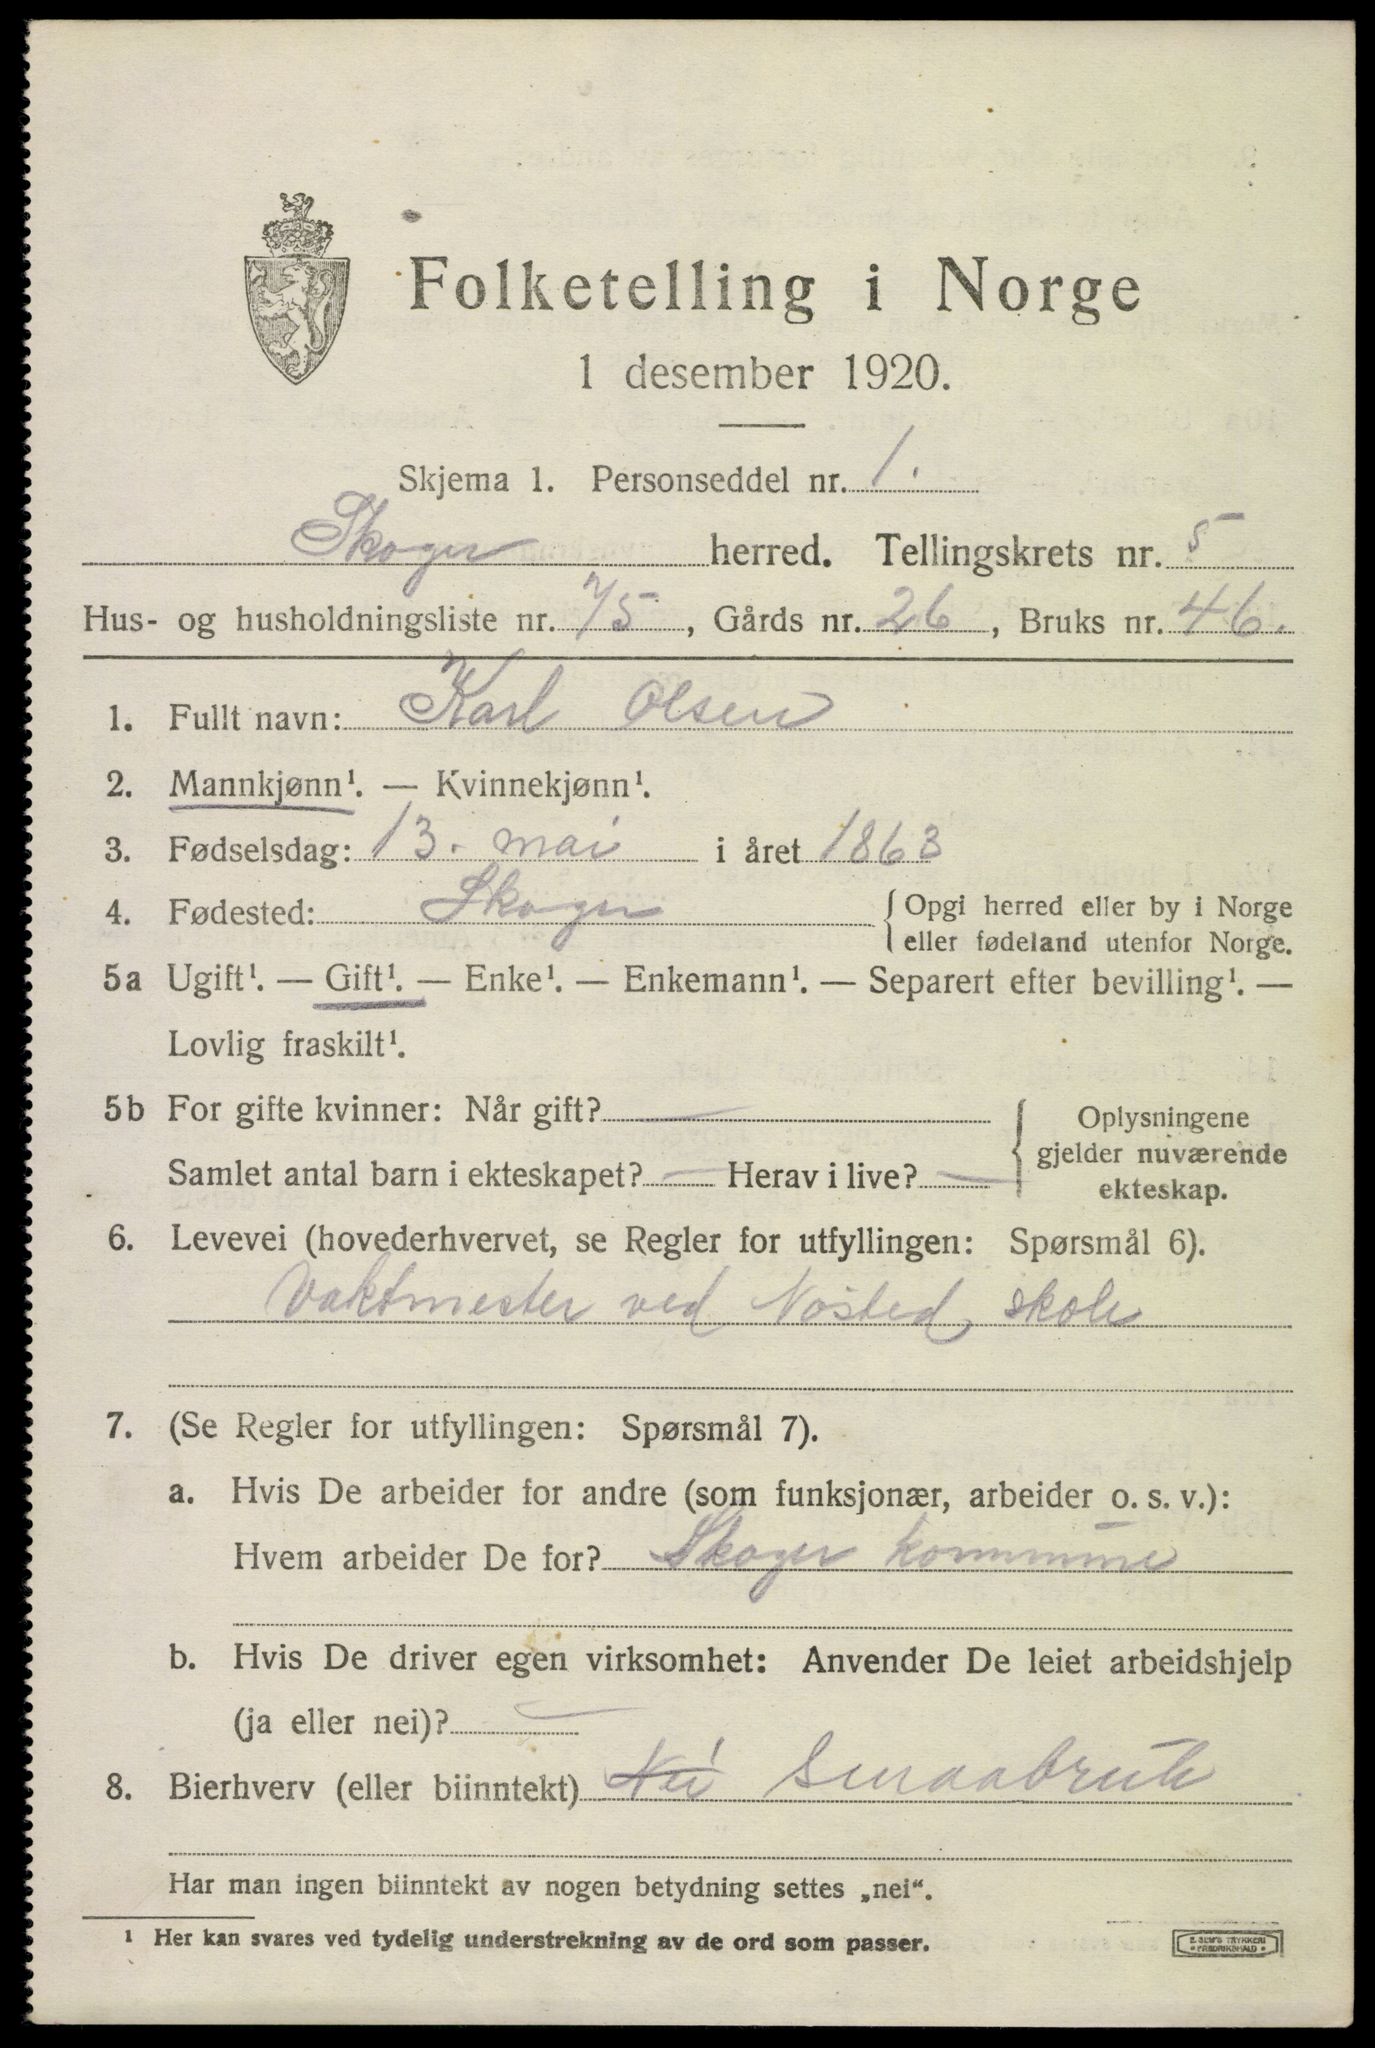 Folketelling i Norge
1 desember 1920.
Skjema 1. Personseddel nr. 1.
Skoger herred. Tellingskrets nr. 5
Hus- og husholdningsliste nr. 75, Gårds nr. 26, Bruks nr. 46.
1. Fullt navn: Karl Olsen
2. Mannkjønn¹. — Kvinnekjønn¹.
3. Fødselsdag: 13. mai i året 1863
4. Fødested: Skoger { Opgi herred eller by i Norge
eller fødeland utenfor Norge.
5a Ugift¹. — Gift¹. — Enke¹. — Enkemann¹. — Separert efter bevilling¹. —
Lovlig fraskilt¹.
5b For gifte kvinner: Når gift? —
Samlet antal barn i ekteskapet? — Herav i live? —
Oplysningene
gjelder nuværende
ekteskap.
6. Levevei (hovederhvervet, se Regler for utfyllingen: Spørsmål 6).
Vaktmester ved Nøsted skole
7. (Se Regler for utfyllingen: Spørsmål 7).
a. Hvis De arbeider for andre (som funksjonær, arbeider o. s. v.):
Hvem arbeider De for? Skoger kommune
b. Hvis De driver egen virksomhet: Anvender De leiet arbeidshjelp
(ja eller nei)? —
8. Bierhverv (eller biinntekt) Nei Smaabruk
Har man ingen biinntekt av nogen betydning settes „nei“.
¹ Her kan svares ved tydelig understrekning av de ord som passer.
E. SEM'S TRYKKERI
• FREDRIKSHALD •